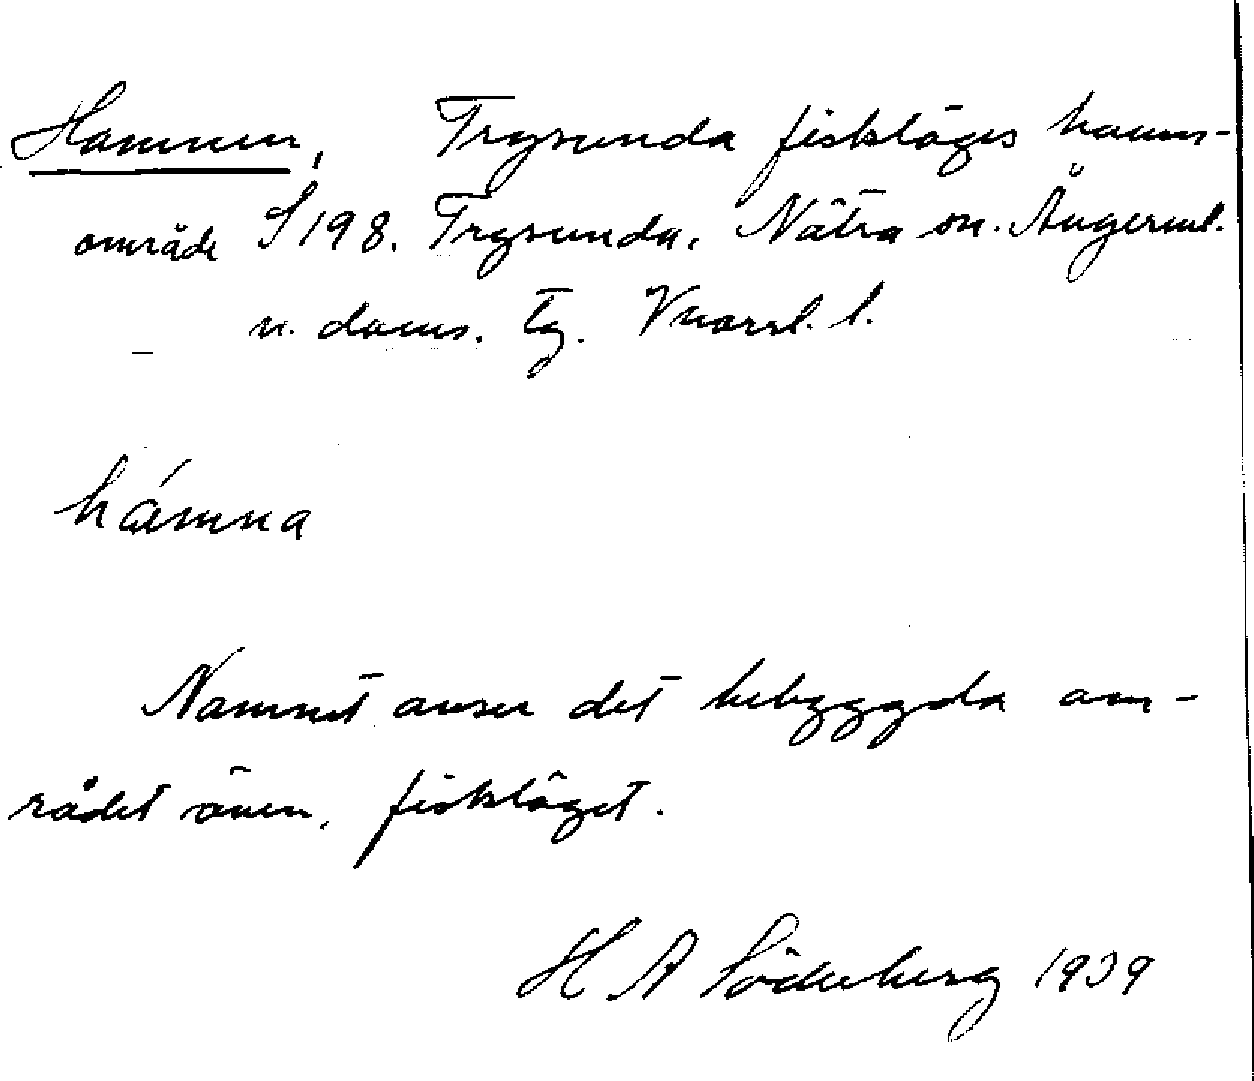 Hamnen, Trysunda fiskläges hamn-
område S 198. Trysunda, Nätra sn. Ångerml.
n. doms. tg. Vnorrl. l.
hámna
Namnet avser det bebyggda om-
rådet även, fiskläget.
H A Söderberg 1939